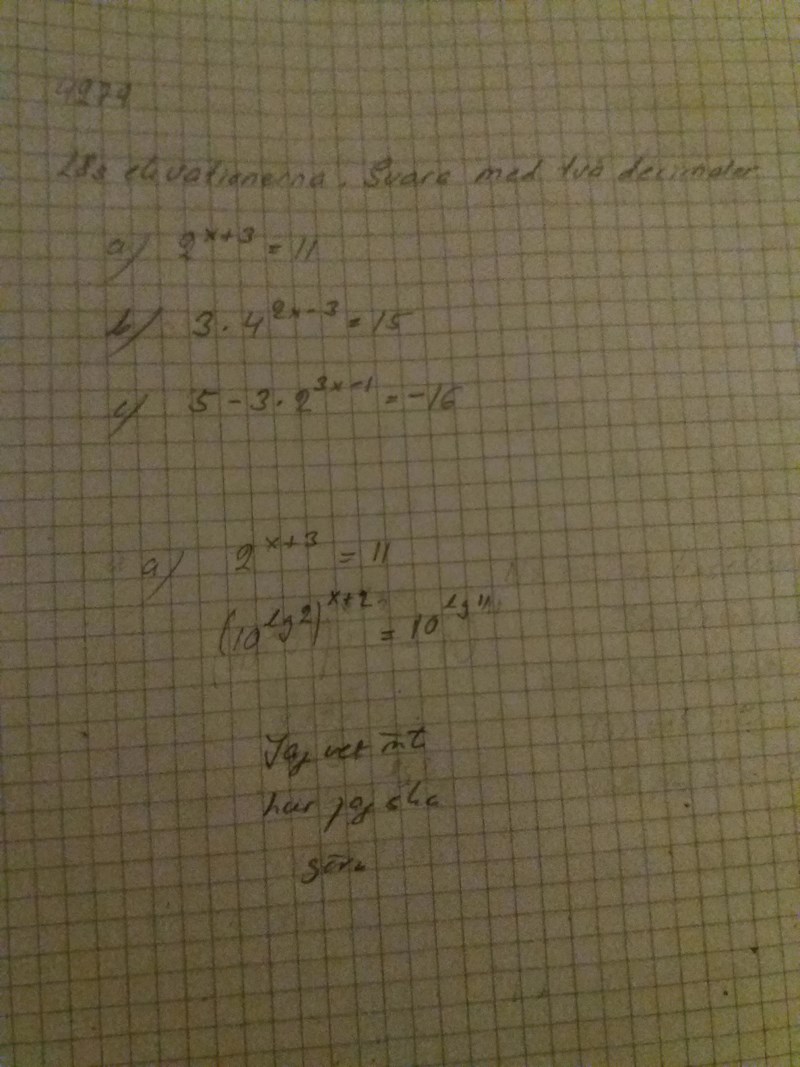 4274
Lös ekvationerna. Svara med två decimaler
a) 2^{x+3} = 11
b) 3 · 4^{2x-3} = 15
c) 5 - 3 · 2^{3x-1} = -16
a) 2^{x+3} = 11
(10^{lg2})^{x+2} = 10^{lg11}
Jag vet int
hur jag ska
göra